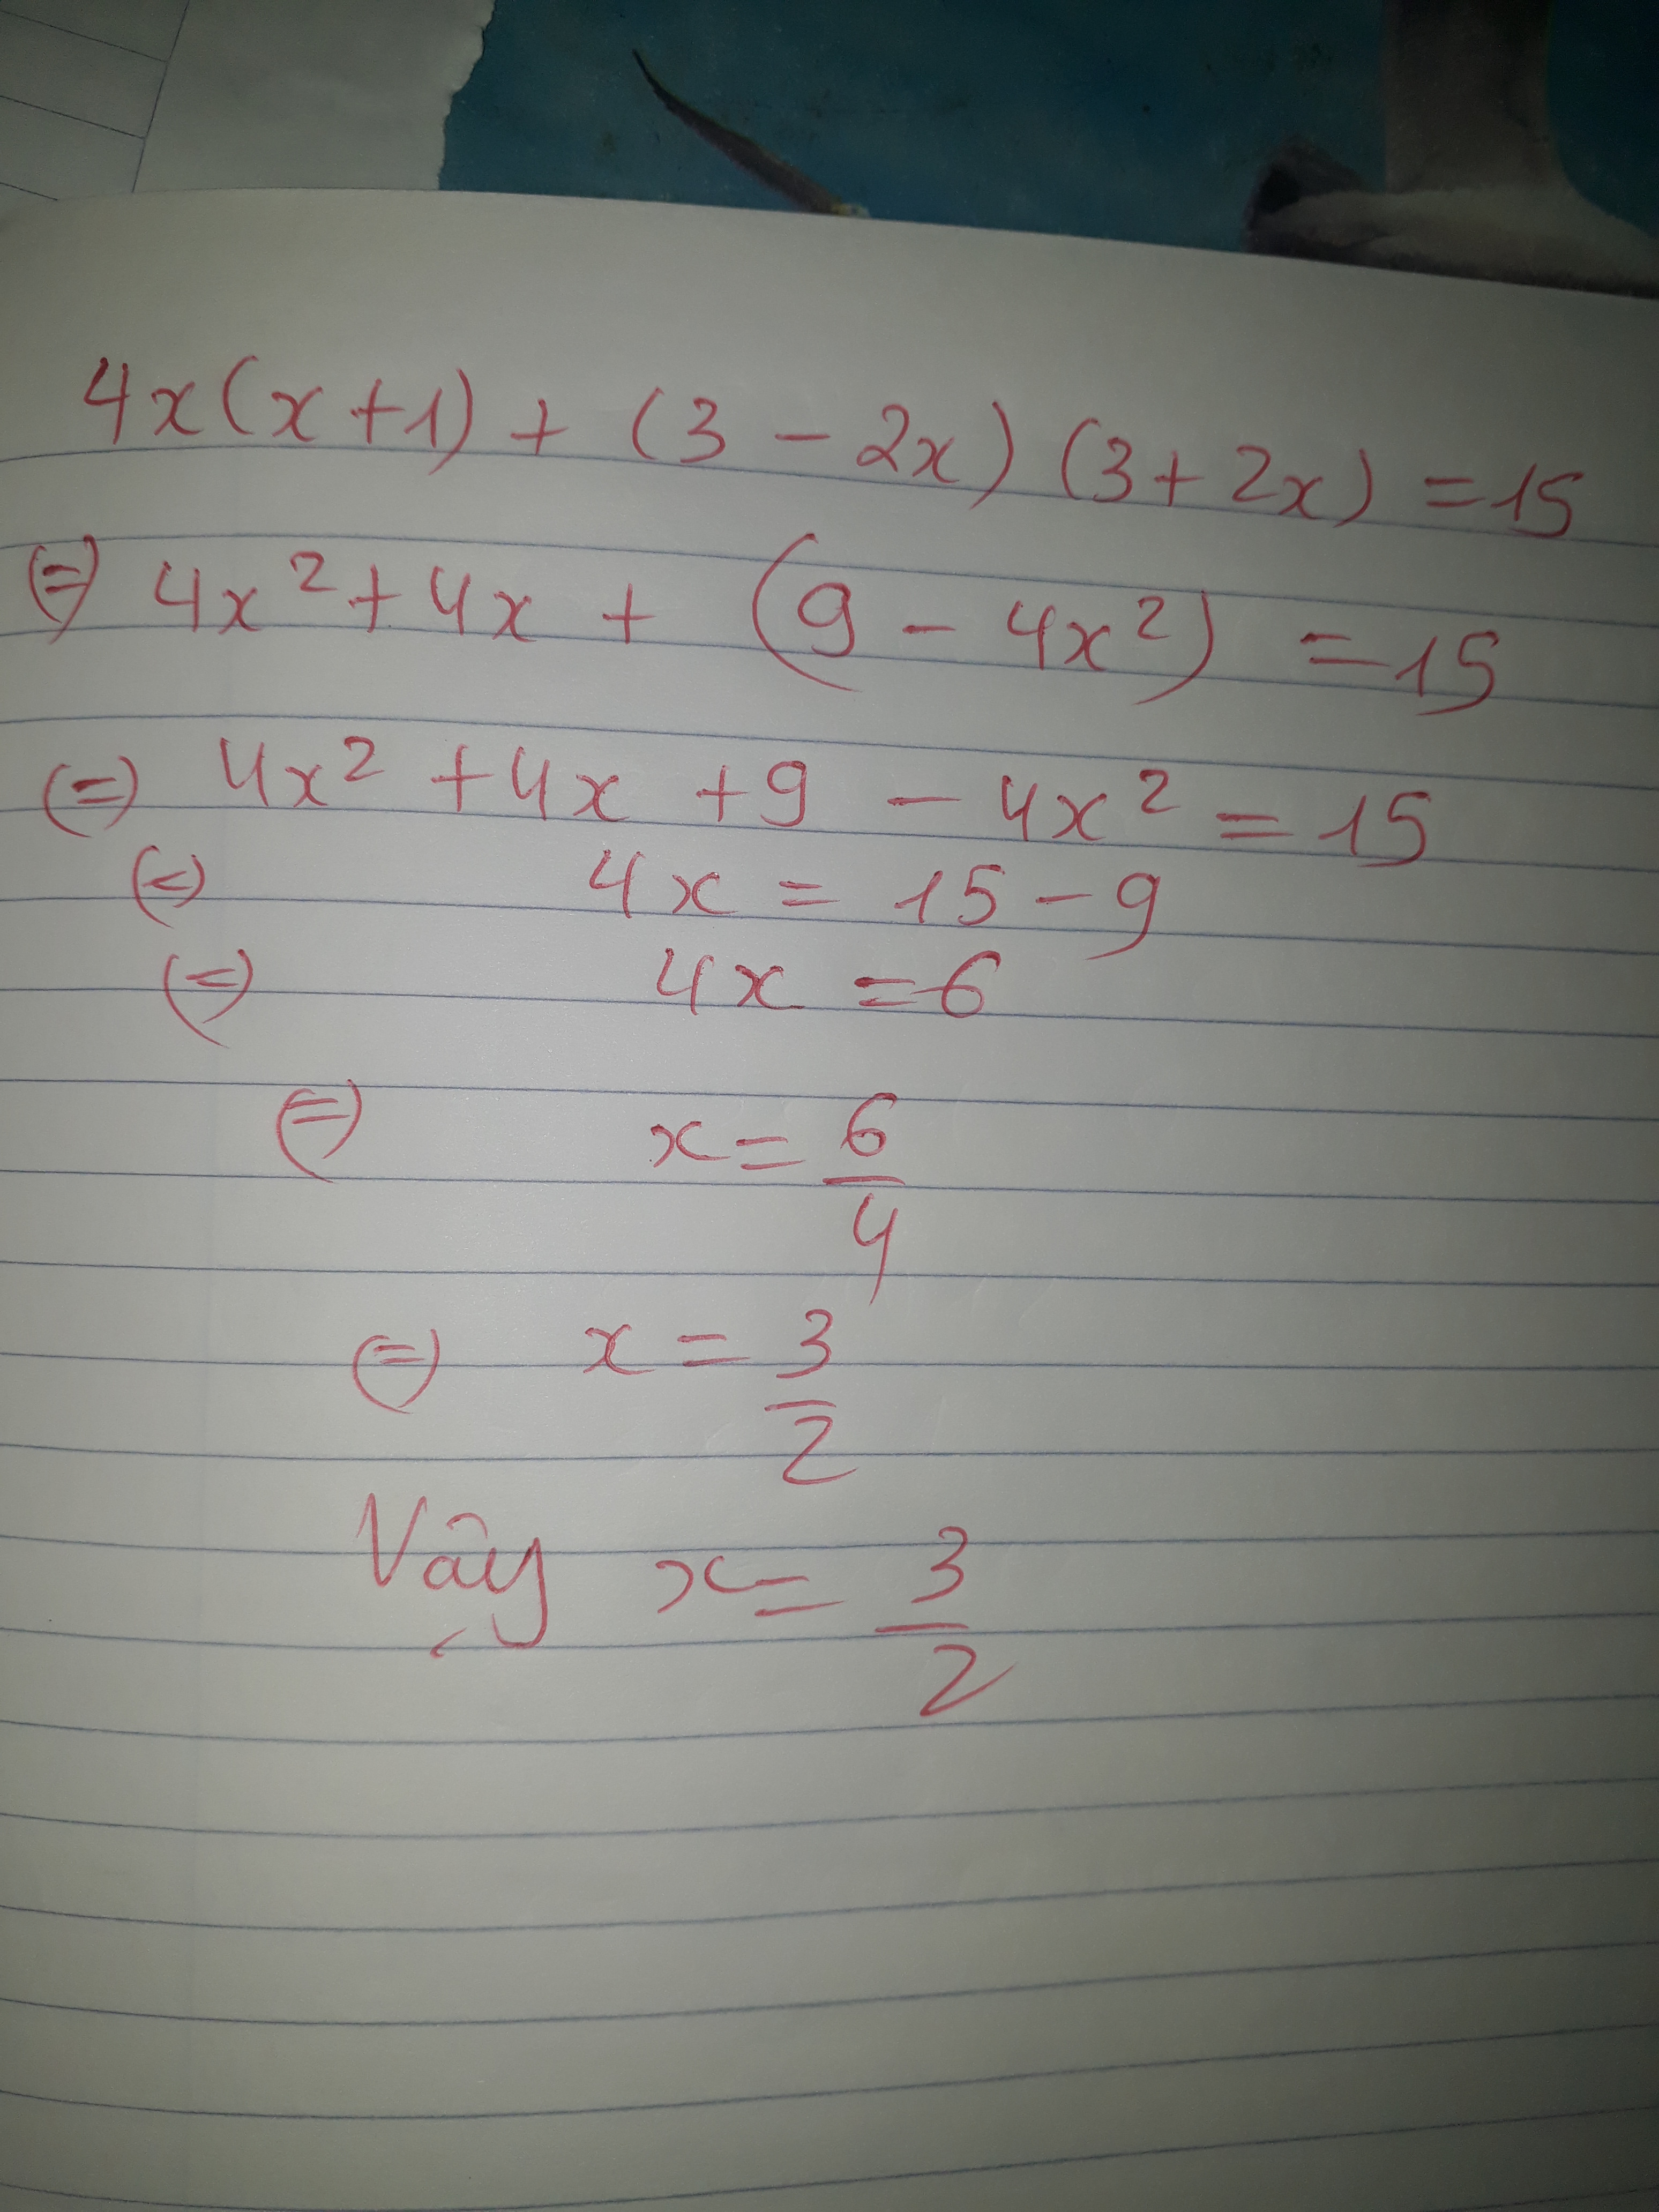 4x(x+1) + (3 - 2x) (3 + 2x) = 15
(=) 4x² + 4x + (9 - 4x²) = 15
(=) 4x² + 4x + 9 - 4x² = 15
(=) 4x = 15 - 9
(=) 4x = 6
(=) x = 6/4
(=) x = 3/2
Vậy x = 3/2